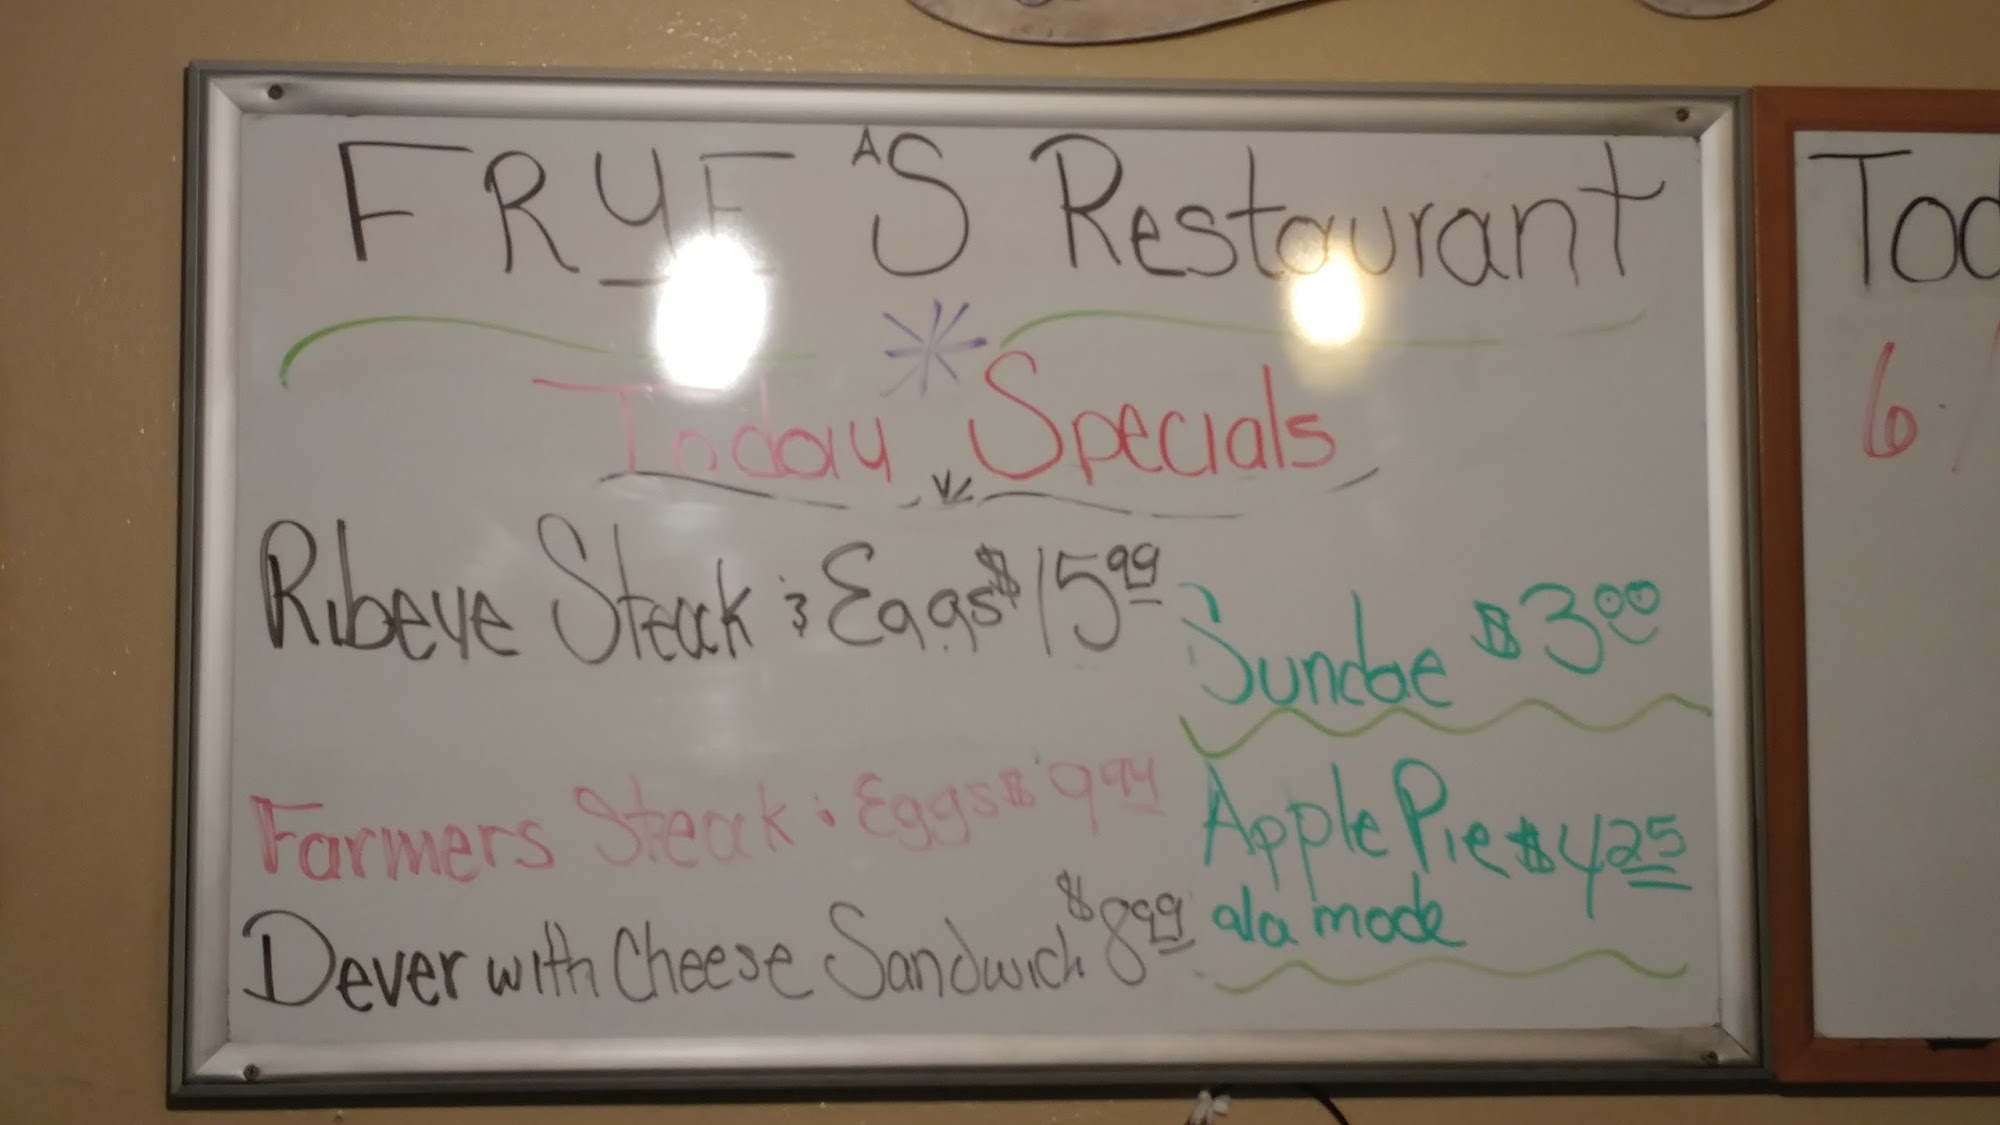 FRYE'S Restaurant
Today Specials
Ribeye Steak & Eggs $15.99
Farmers Steak & Eggs $9.99
Dever with Cheese Sandwich $8.99
Sundae $3.00
Apple Pie $4.25
ala mode
Tod
6